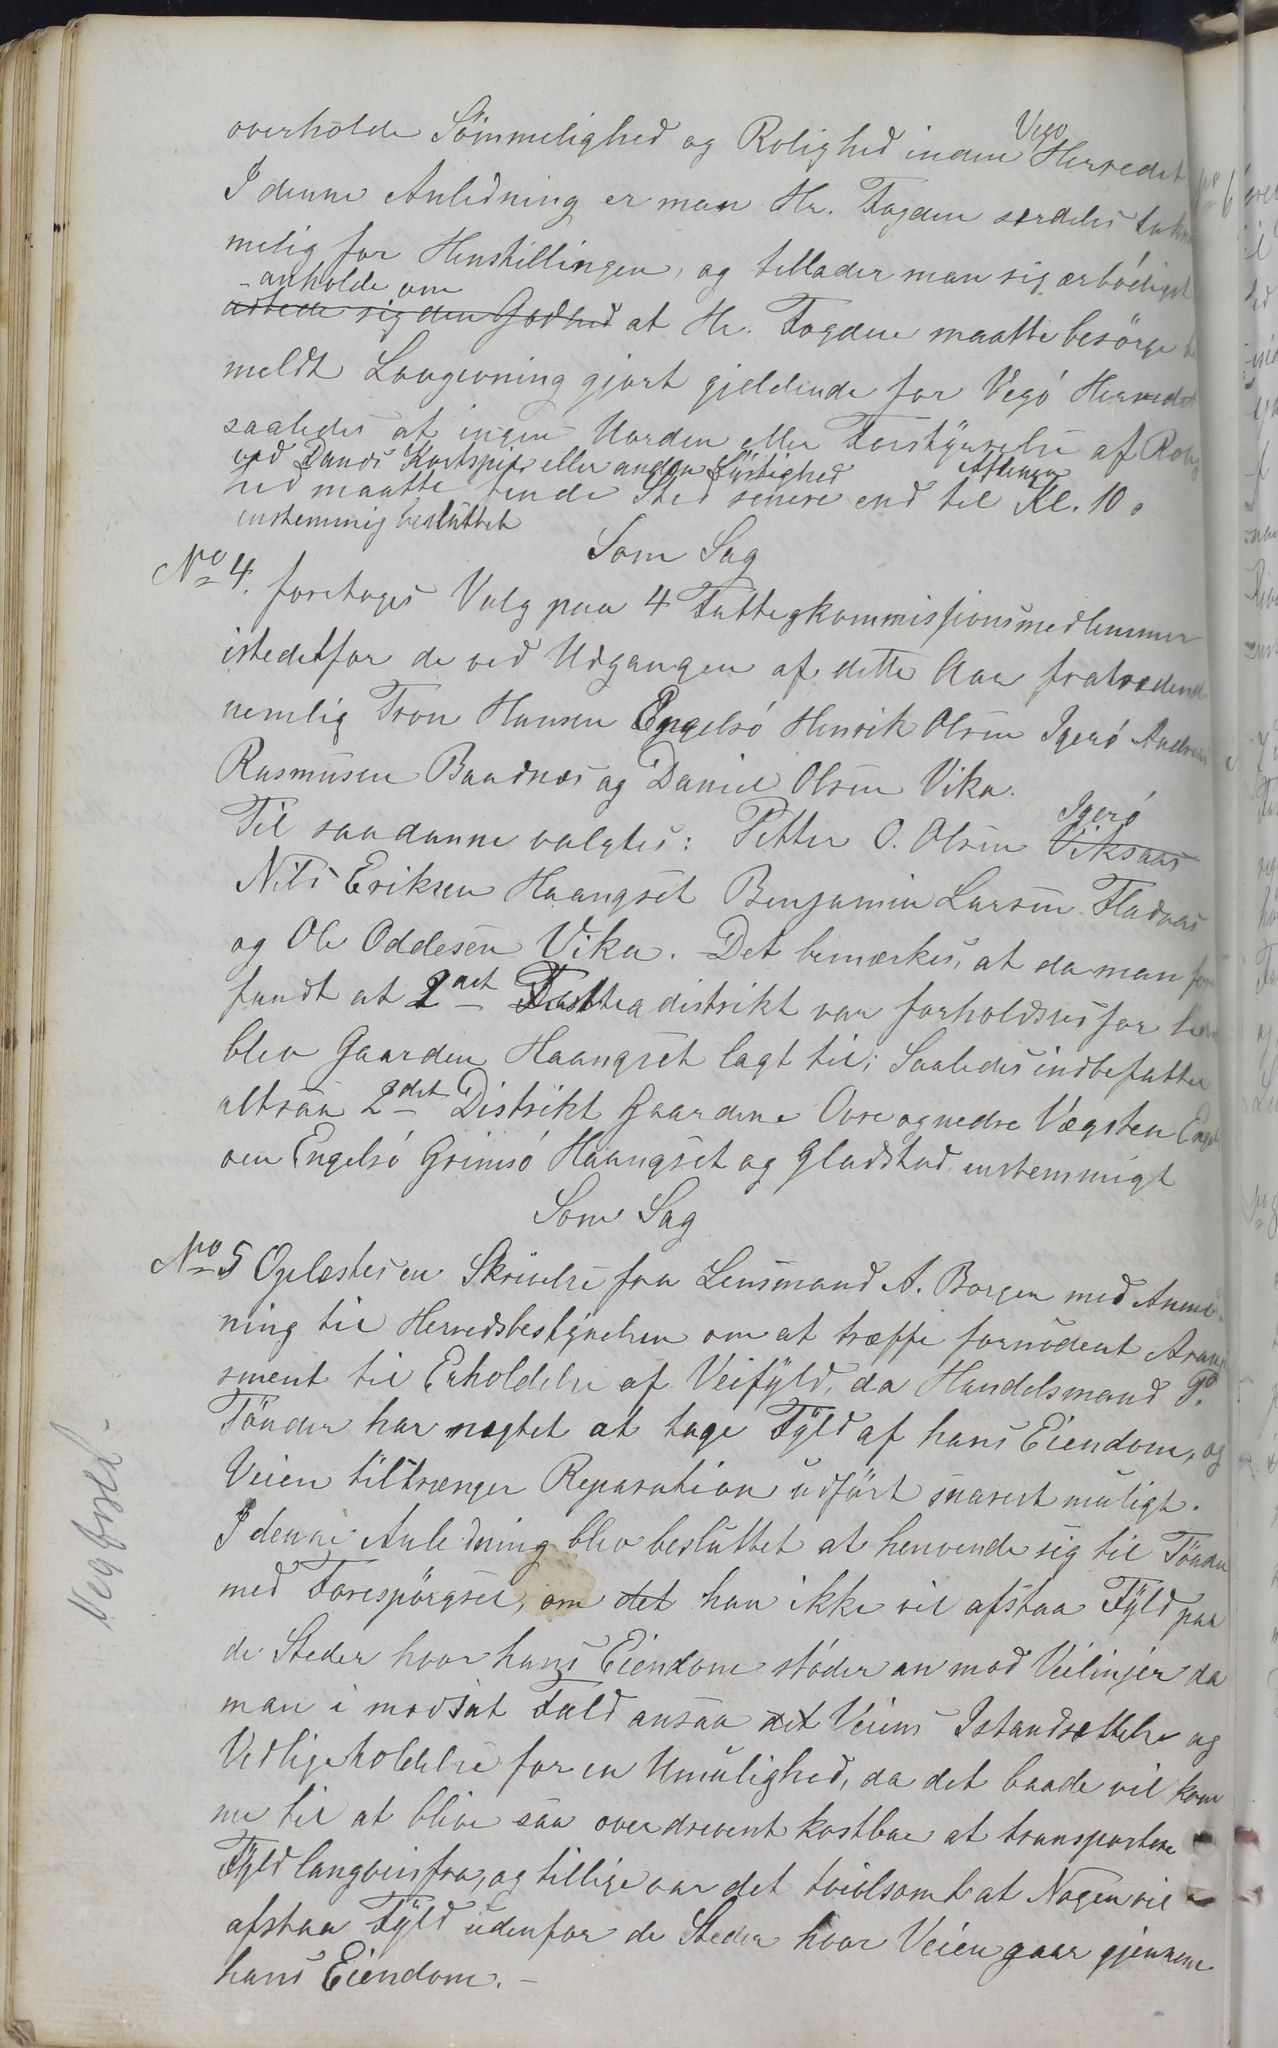 overholde Sömmelighed og Rolighed inden Vego Herredet
I denne Anledning er man Hr. Fogden særdeles takne
melig for Henstillingen, og tillader man sig ærbödigst
anholde om
udbede sig den Godhed at Hr. Fogden maatte besörge
meldt Lovgivning gjort gjeldende for Vegö Herredet
saaledes at ingen Uorden eller Forstÿrrelse af Rolig
ved Dands Kortspil eller anden Lÿstighed Aftenen
hed maatte finde Sted senere end til Kl. 10.
enstemmig besluttet
Som Sag
No 4. foretoges Valg paa 4 Fattigkommissionsmedlemmer
istedetfor de ved Udgangen af dette Aar fratrædende
nemlig Tron Hansen Engelsö Henrik Olsen Igerö Andreas
Rasmusen Baadnæs og Daniel Olsen Vika.
Til saadanne valgtes: Petter O. Olsen Viksaas Igerö
Nils Eriksen Haangset Benjamin Larsen Fladaas
og Ole Oddesen Vika. Det bemærkes, at da man for
fandt at 2det Fattigdistrikt var forholdsvis for
blev Gaarden Haangset lagt til; Saaledes indbefatter
altsaa 2det Distrikt Gaardene Övre og nedre Vægsten
Engelsö Grimsö Haangset og Gladstad enstemmigt
Som Sag
No 5 Oplæstes en Skrivelse fra Lensmand A. Borgen med Anmod
ning til Herredsbestÿrelsen om at træffe fornödent Arang
sment til Erholdelse af Veifÿld, da Handelsmand P.
Tönder har nægtet at tage Fÿld af hans Eiendom, og
Veien tiltrænger Reparation udfört snarest muligt.
I denne Anledning blev besluttet at henvende sig til Tönder
med Forespörgsel, om det han ikke vil afstaa Fÿld paa
de Steder hvor hans Eiendom stöder an mod Veilinjer da
man i modsat Fald ansaa det Veiens Istandsættelse og
Vedligeholdelse for en Umulighed, da det baade vil kom
me til at blive saa overdrevent kostbar at transportere
Fÿld langveisfra, og tillige var det tvivlsomt at Nogen vil
afstaa Fÿld udenfor de Steder hvor Veien gaar gjennem
hans Eiendom. –